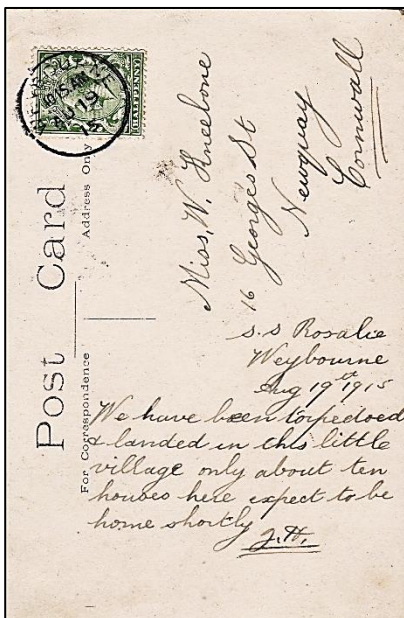 Post Card
For Correspondence
Address Only
HALFPENNY
10.15 AM
AU 19
15
Miss, W. Kneebone
16 Georges St
Newquay
Cornwall
s.s Rosalie
Weybourne
Aug 19th 1915
We have been torpedoed
& landed in this little
village only about ten
houses here expect to be
home shortly
J.H.